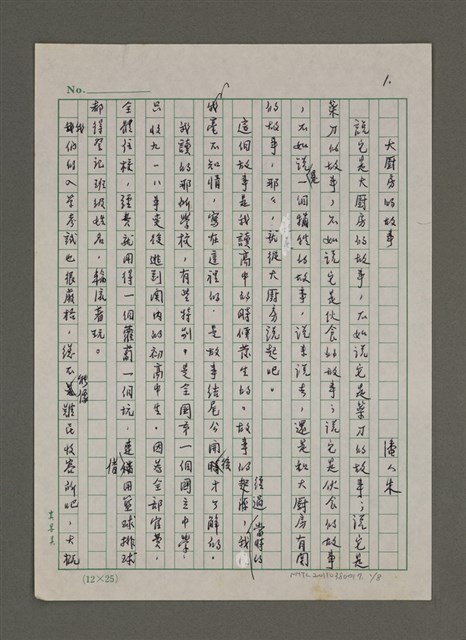 No.
1.
大厨房的故事
潘人木
說它是大厨房的故事，不如說它是菜刀的故事；說它是
菜刀的故事，不如說它是伙食的故事；說它是伙食的故事
，不如說是一個犧牲的故事，說來說去，還是和大厨房有關
的故事，那麼，就從大厨房說起吧。
這個故事是我讀高中的時候發生的。故事的經過，當時的我
並不知情，寫在這裡的，是故事結尾公開後才了解的。
我讀的那所學校，有些特别，是全國第一個國立中學，
只收九一八事變後逃到關内的初高中生。因為全部官費，
全體住校，經費就用得一個蘿蔔一個坑，連借用籃球排球
都得登記班級姓名，輪流著玩。
我們的入學考試也很嚴格，總不能像難民收容所吧，大概
(12×25)
1/8